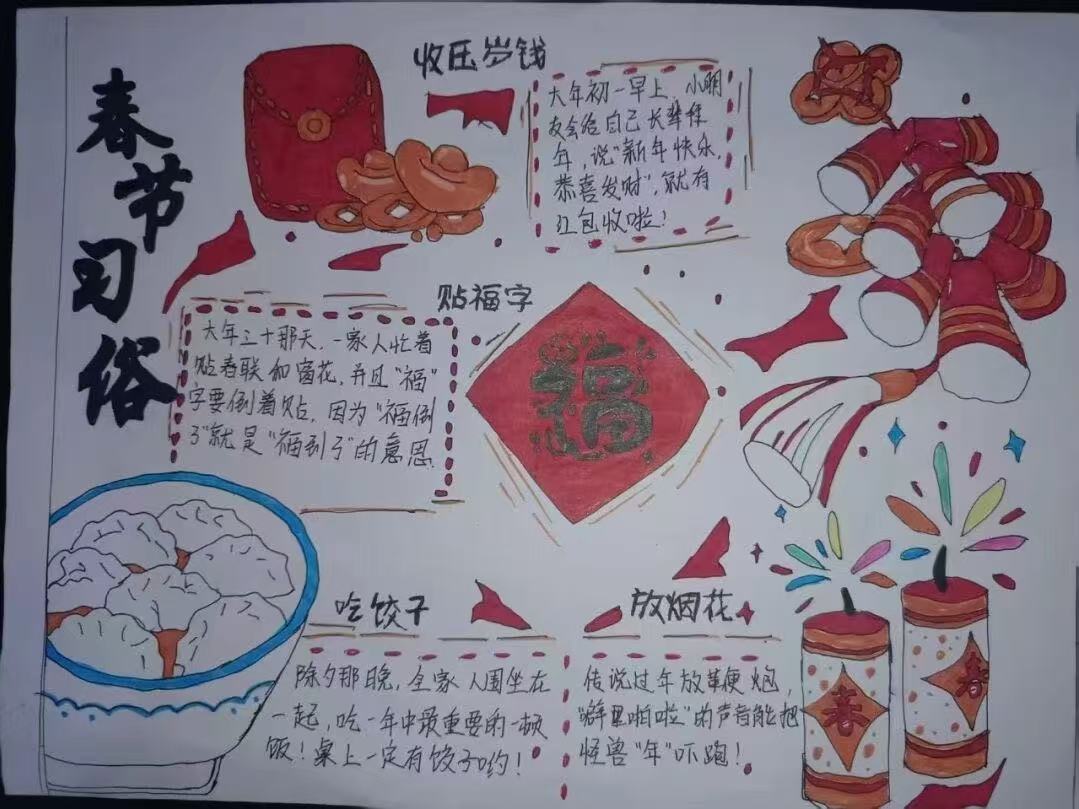 春节习俗
收压岁钱
大年初一早上，小朋
友会给自己长辈拜
年，说"新年快乐，
恭喜发财"，就有
红包收啦！
贴福字
大年三十那天，一家人忙着
贴春联和窗花，并且"福"
字要倒着贴，因为"福倒
了"就是"福到了"的意思.
福
吃饺子
除夕那晚，全家人围坐在
一起，吃一年中最重要的一顿
饭！桌上一定有饺子哟！
放烟花
传说过年放鞭炮，
"噼里啪啦"的声音能把
怪兽"年"吓跑！
春
春